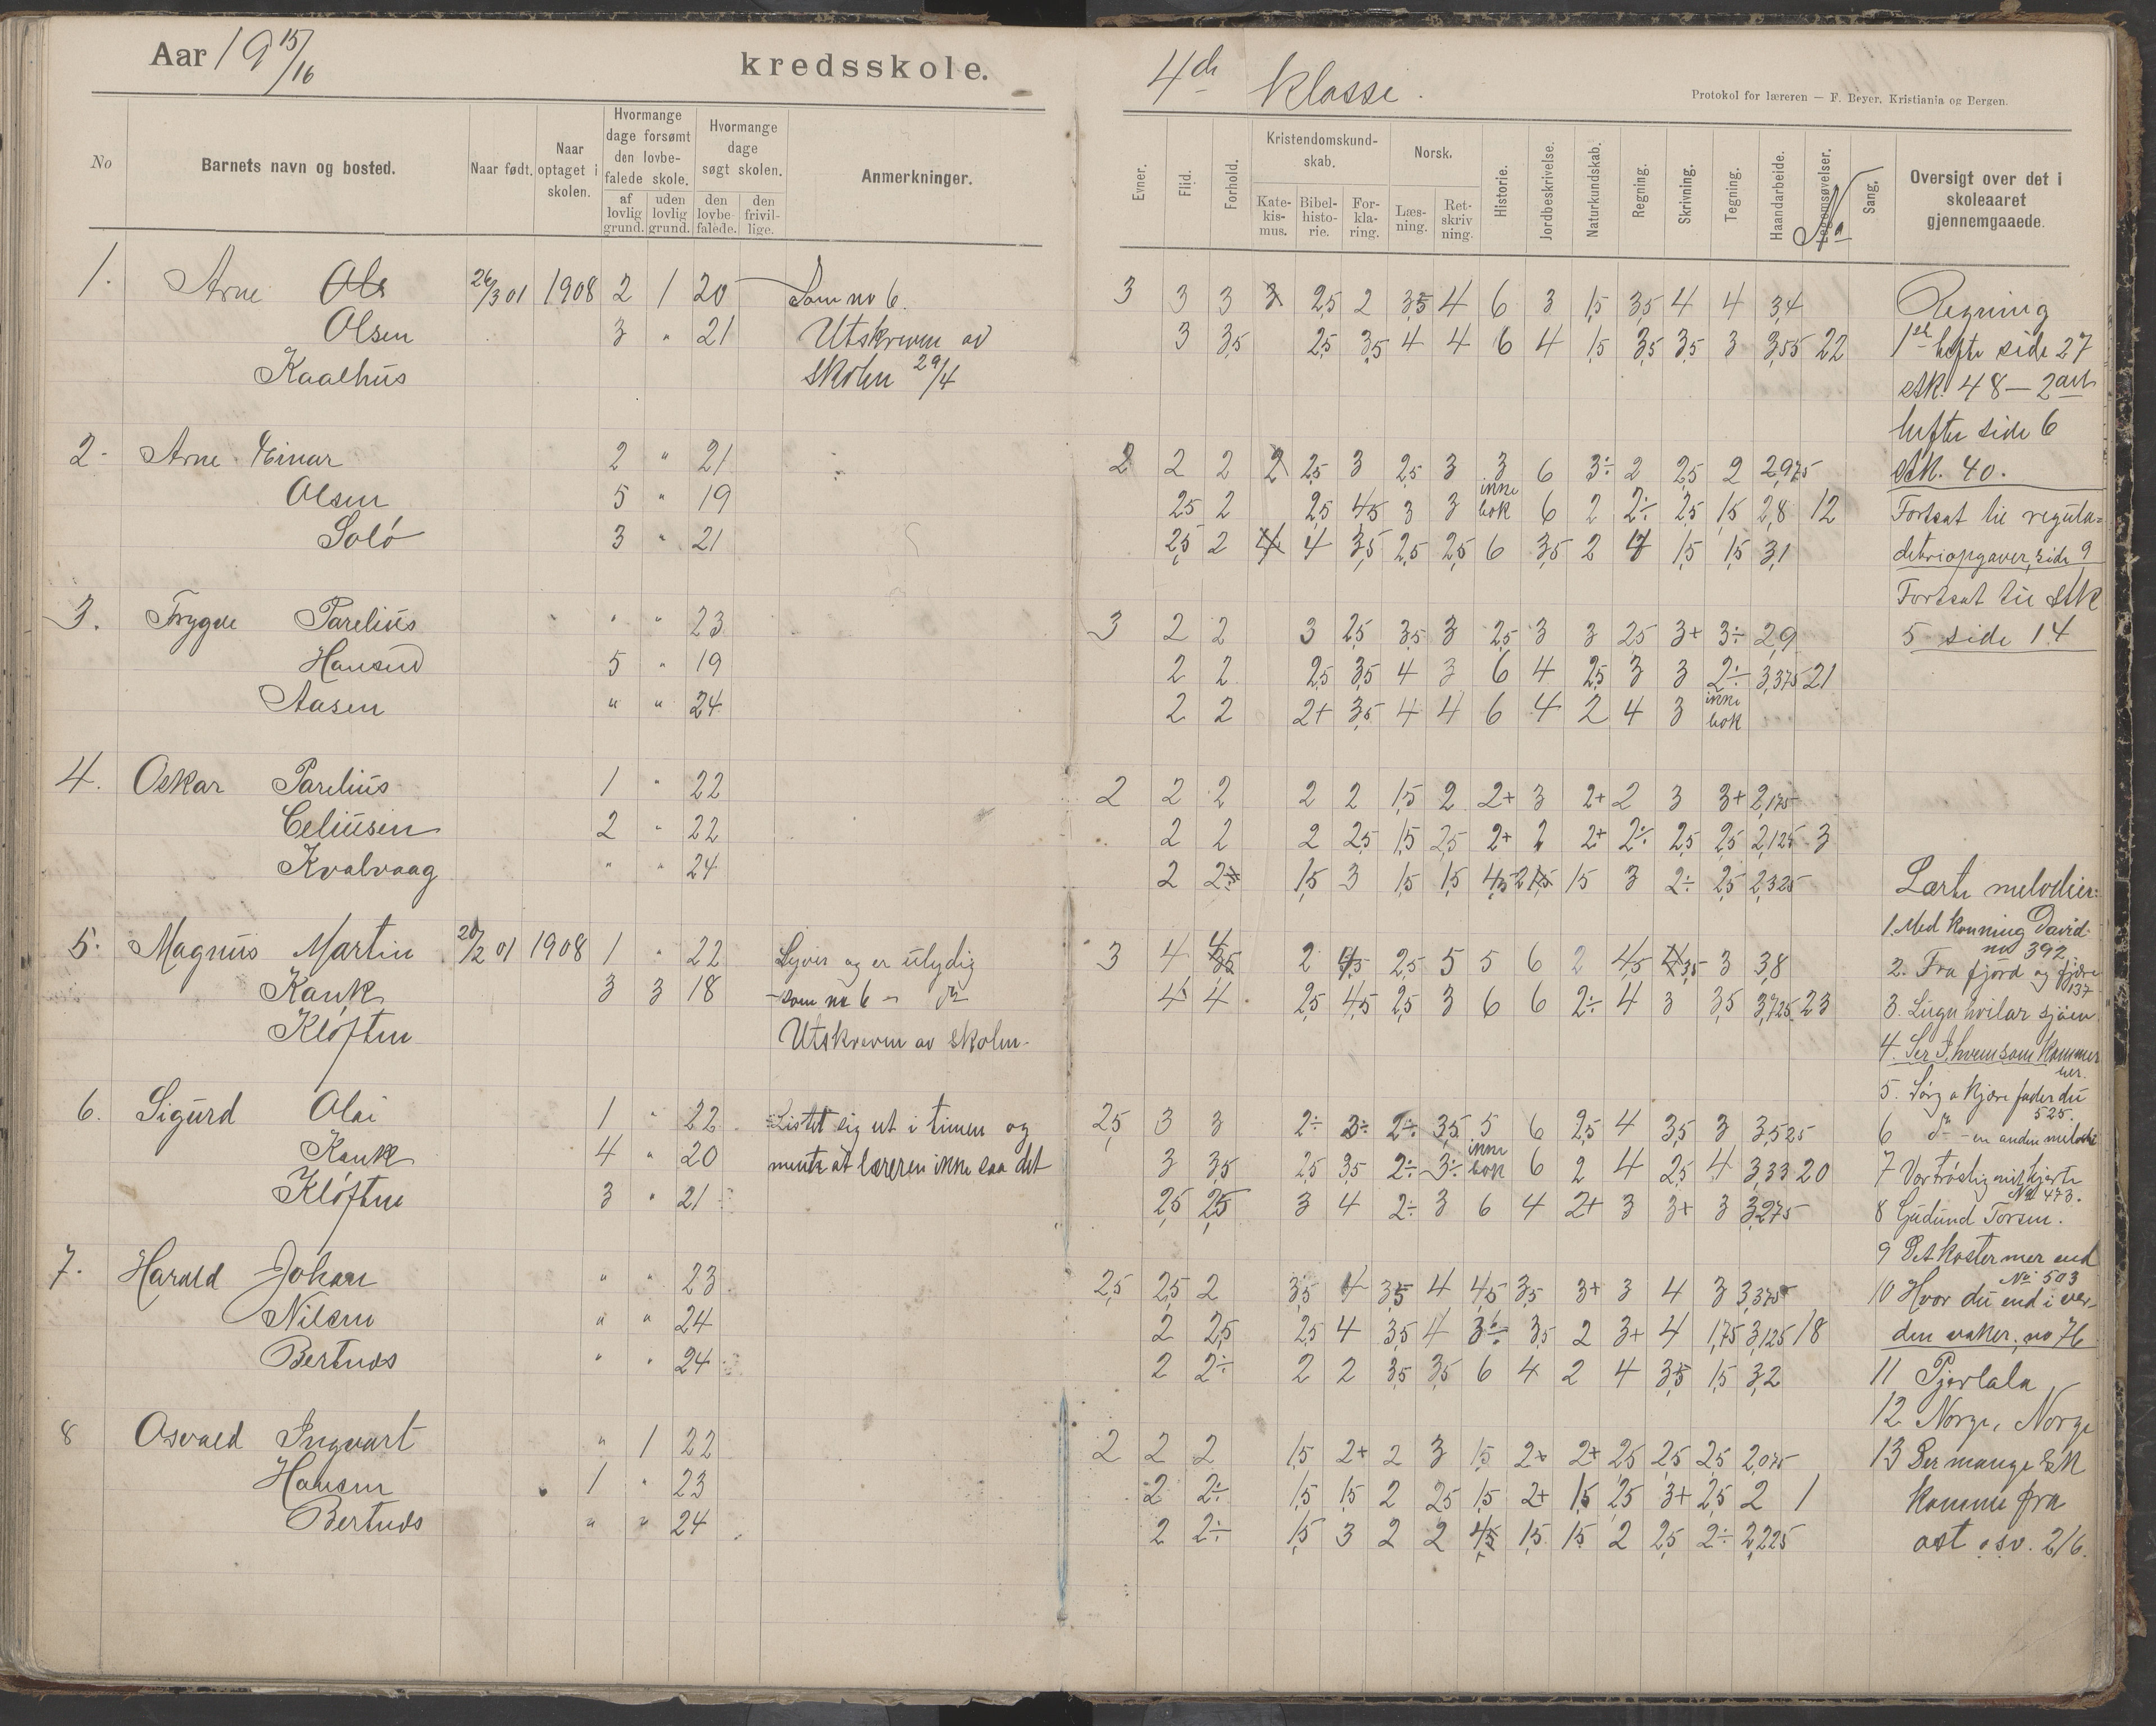 Aar 19 15/16
kredsskole.
No
Barnets navn og bosted.
Naar født.
Naar optaget i skolen.
Hvormange dage forsømt den lovbefalede skole.
af lovlig grund.
uden lovlig grund.
Hvormange dage søgt skolen.
den lovbefalede.
den frivillige.
Anmerkninger.
1. Arne Ole 26/3 01 1908 2 1 20 Som no 6.
Olsen 3 " 21 Utskreven av
Kaalhus skolen 29/4
2. Arne Einar 2 " 21
Olsen 5 " 19
Solö 3 " 21
3. Trygve Parelius " " 23
Hansen 5 " 19
Aasen " " 24
4. Oskar Parelius 1 " 22
Celiusen 2 " 22
Kvalvaag " " 24
5. Magnus Martin 20/2 01 1908 1 " 22 Lyver og er ulydig
Kank 3 3 18 - som no 6 -
Kløften Utskreven av skolen.
6. Sigurd Olai 1 " 22 Listet sig ut i timen og
Kank 4 " 20 mente at læreren ikke saa det
Kløften 3 " 21
7. Harald Johan " " 23
Nilsen " " 24
Bertnes " " 24
8 Osvald Ingvart " 1 22
Hansen 1 " 23
Bertnes " " 24
4de klasse.
Protokol for læreren — F. Beyer, Kristiania og Bergen.
Evner.
Flid.
Forhold.
Kristendomskundskab.
Katekismus.
Bibelhistorie.
Forklaring.
Norsk.
Læsning.
Retskrivning.
Historie.
Jordbeskrivelse.
Naturkundskab.
Regning.
Skrivning.
Tegning.
Haandarbeide.
Legemsøvelser.
No
Sang.
Oversigt over det i skoleaaret gjennemgaaede.
3 3 3 3 2,5 2 3,5 4 6 3 1,5 3,5 4 4 3,4 Regning
3 3,5 2,5 3,5 4 4 6 4 1,5 3,5 3,5 3 3,55 22 1ste hefte side 27
stk. 48 — 2det
hefte side 6
2 2 2 2 2,5 3 2,5 3 3 6 3÷ 2 2,5 2 2,975 stk. 40.
2,5 2 2,5 4,5 3 3 ikke bok 6 2 2÷ 2,5 1,5 2,8 12 Fortsat til regula-
2,5 2 4 4 3,5 2,5 2,5 6 3,5 2 4 1,5 1,5 3,1 detriopgaver, side 9
Fortsat til stk
3 2 2 3 2,5 3,5 3 2,5 3 3 2,5 3+ 3÷ 2,9 5 side 14
2 2 2,5 3,5 4 3 6 4 2,5 3 3 2÷ 3,375 21
2 2 2+ 3,5 4 4 6 4 2 4 3 ikke bok
2 2 2 2 2 1,5 2 2+ 3 2+ 2 3 3+ 2,175
2 2 2 2,5 1,5 2,5 2+ 2 2+ 2÷ 2,5 2,5 2,125 3
2 2 1,5 3 1,5 1,5 1,5 3 2÷ 2,5 2,325 Lærte melodier:
1. Med konning David
no 392
3 4 4 2 4,5 2,5 5 5 6 2 4,5 3,5 3 3,8 2. Fra fjord og fjære
137
4 4 2,5 4,5 2,5 3 6 6 2÷ 4 3 3,5 3,725 23 3. Lugn hvilar sjøen
4. Ser I, hvem som kommer
her.
5. Sörg o kjære fader du
525.
2,5 3 3 2÷ 3÷ 2÷ 3,5 5 6 2,5 4 3,5 3 3,525 6 - en anden melodi
3 3,5 2,5 3,5 2÷ 3÷ ikke bok 6 2 4 2,5 4 3,33 20 7 Vær trøstig mit hjerte
No 473.
2,5 2,5 3 4 2÷ 3 6 4 2+ 3 3+ 3 3,275 8 Gudund Torsen.
9 Det koster mer end
No 503
2,5 2,5 2 3,5 4 3,5 4 4,5 3,5 3+ 3 4 3 3,375 10 Hvor du end i ver-
2 2,5 2,5 4 3,5 4 3÷ 3,5 2 3+ 4 1,75 3,125 18 den vaker, no 76
2 2÷ 2 2 3,5 3,5 6 4 2 4 3,5 1,5 3,2 11 Pjerlala
12 Norge, Norge
2 2 2 1,5 2+ 2 3 1,5 2+ 2+ 2,5 2,5 2,5 2,075 13 Der mange skk
2 2÷ 1,5 1,5 2 2,5 1,5 2+ 1,5 2,5 3+ 2,5 2 1 komme fra
2 2÷ 1,5 3 2 2 4,5 1,5 1,5 2 2,5 2÷ 2,225 ost osv. 2/6.